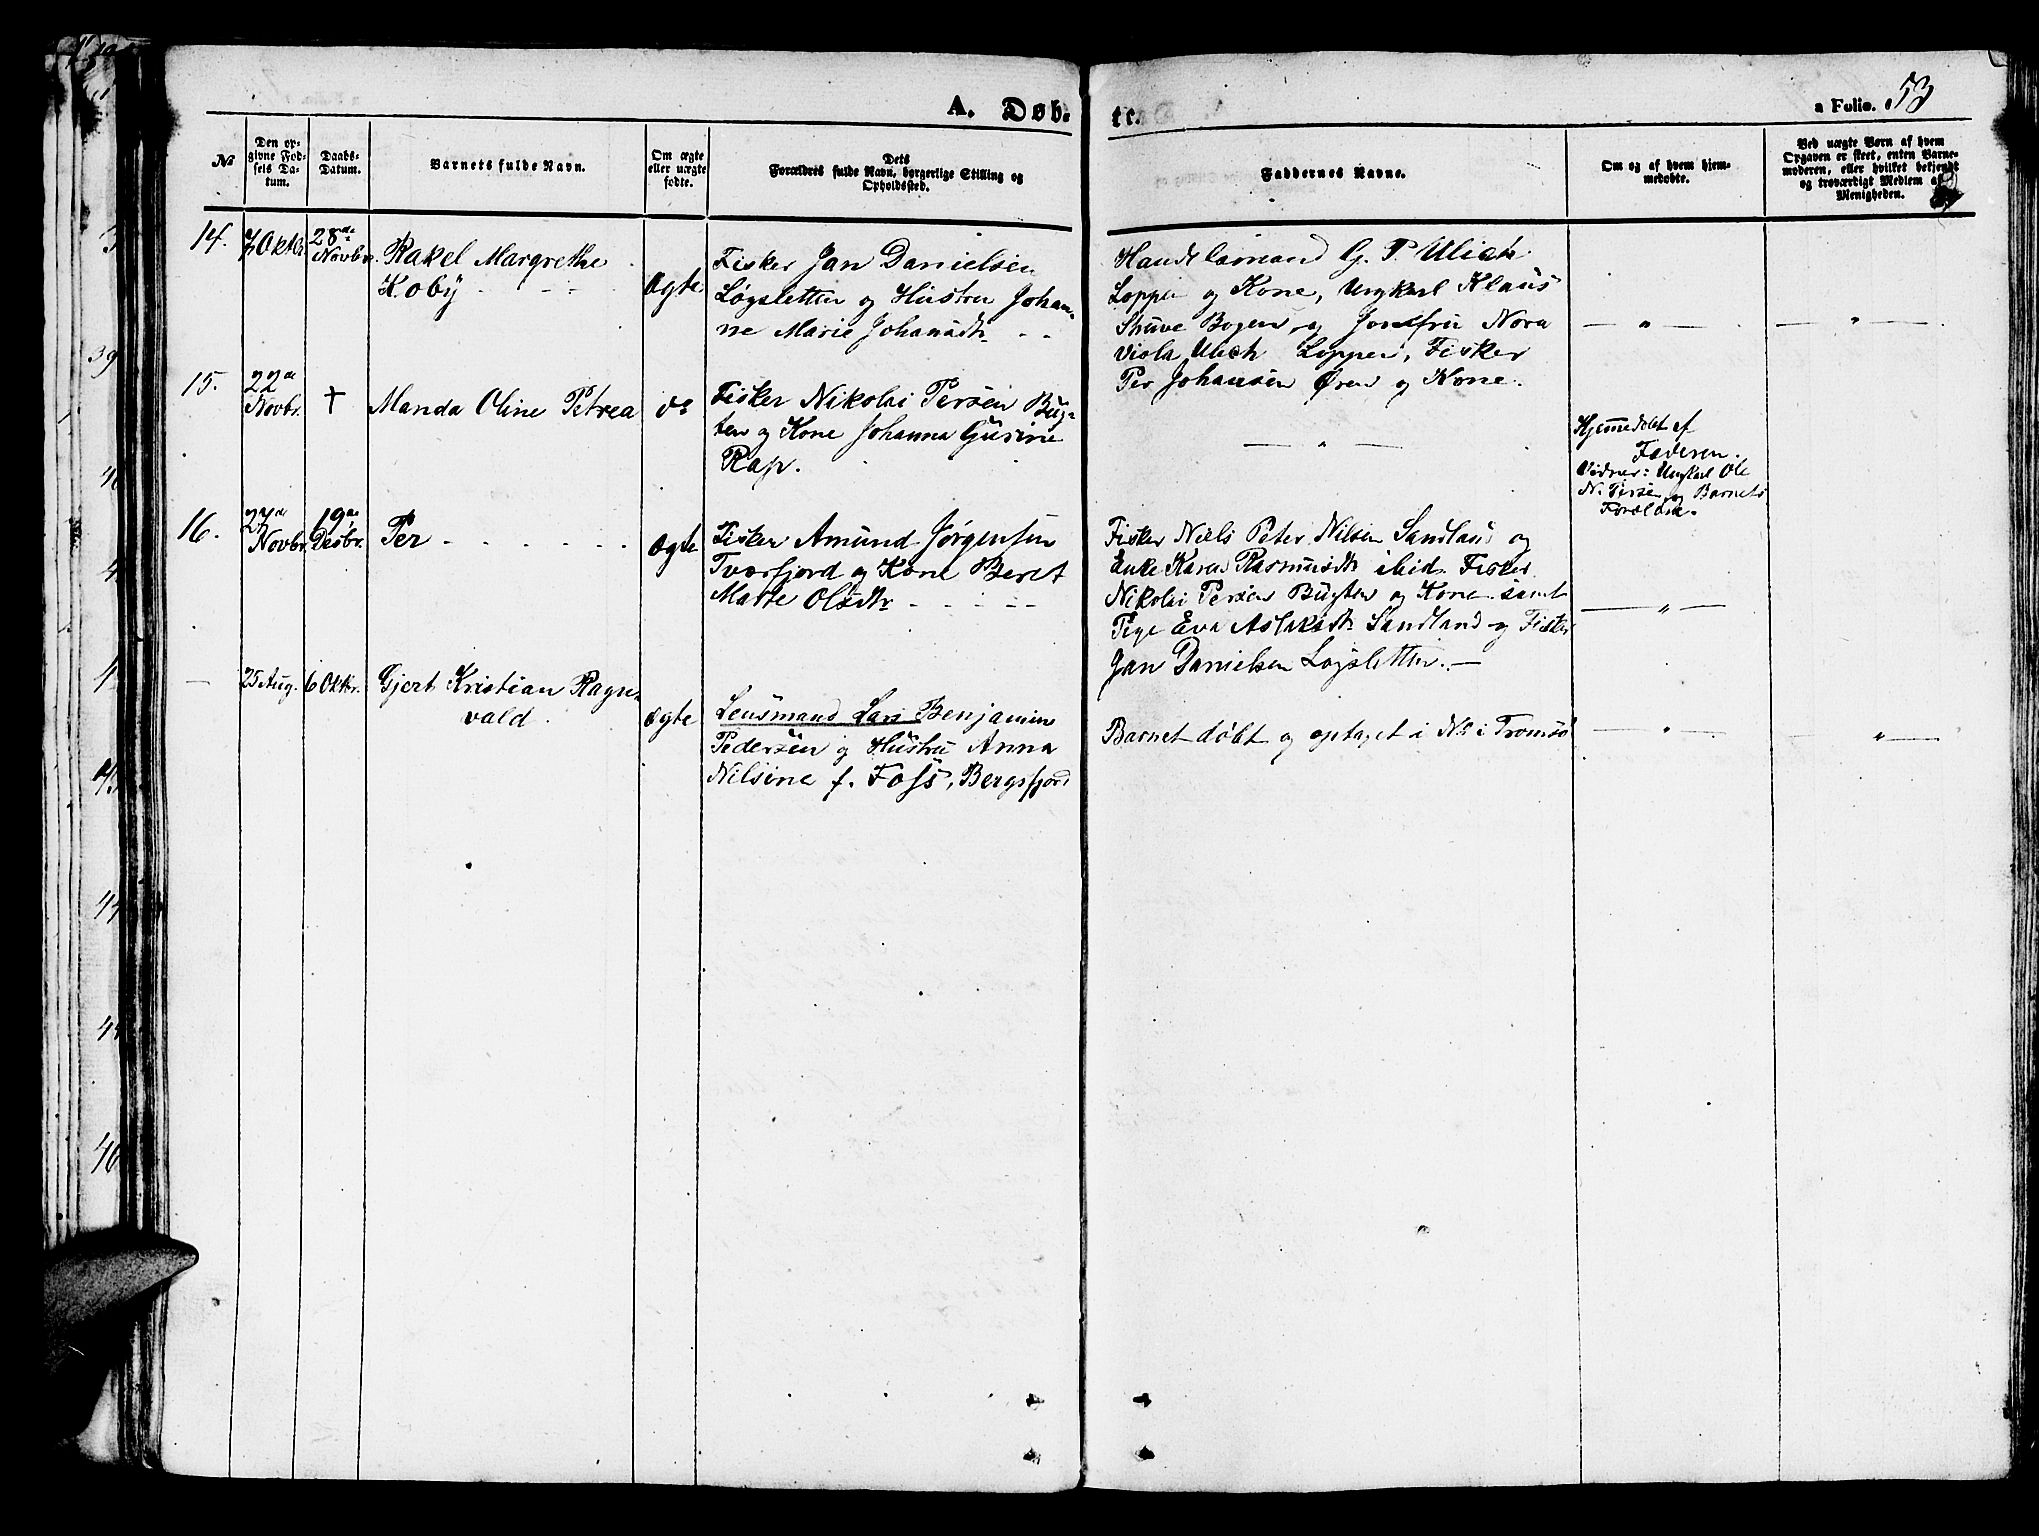 A. Døb-
te.
a Folio. 53
No
Den op-
givne Fød-
sels Da-
tum.
Daabs-
Datum.
Barnets fulde Navn.
Om ægte
eller uægte
fødte.
Dets
Forældres fulde Navn, borgerlige Stilling og
Opholdssted.
Faddernes Navne.
Om og af hvem hjem-
medøbte.
Ved uægte Børn af hvem
Opgaven er skeet, enten Barne-
moderen, eller hvilket bekjendt
og troværdigt Medlem af
Menigheden.
14.
7 Oktbr.
28de
Novbr.
Rakel Margrethe
Koby
Ægte
Fisker Jan Danielsen
Løgsletten og Hustru Johan-
ne Marie Johansdtr.
Handelsmand G. P. Ulich
Loppen og Kone, Ungkarl Klaus
Struve Bogen og Jomfru Nora
Viola Ulich Loppen, Fisker
Per Johansen Øren og Kone.
15.
22de
Novbr.
†
Manda Oline Petrea
do
Fisker Nikolai Persen Bug-
ten og Kone Johanna Gusine
Rap.
Hjemmedøbt af
Faderen.
Vidner: Ungkarl Ole
N. Persen og Barnets
Forældre.
16.
27de
Novbr.
19de
Desbr.
Per
Ægte
Fisker Amund Jørgensen
Tverfjord og Kone Beret
Marte Olsdtr
Fisker Niels Peter Nilsen Sandland og
Enke Karen Rasmusdtr ibid. Fisker
Nikolai Persen Bugten og Kone samt
Pige Eva Aslaksdtr Sandland og Fisker
Jan Danielsen Løgsletten.—
—
25 Aug.
6 Oktbr.
Gjert Kristian Ragn-
vald
Ægte
Lensmand Lars Benjamin
Pedersen og Hustru Anna
Nilsine f. Foss, Bergsfjord
Barnet døbt og optaget i No i Tromsø